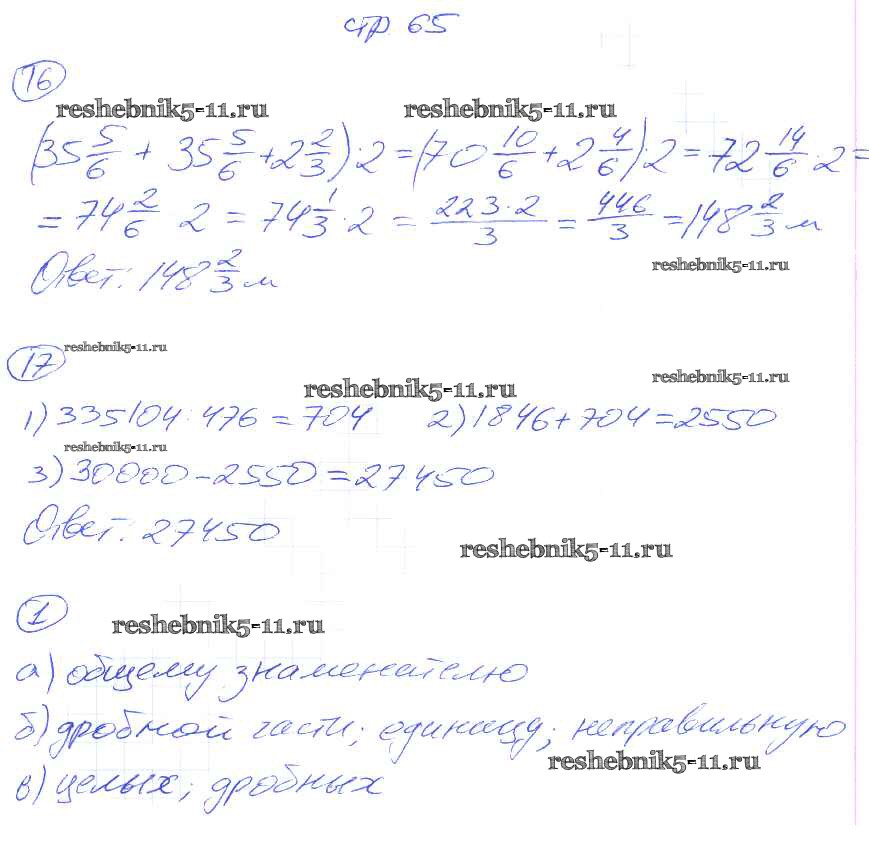 стр 65
16
reshebnik5-11.ru reshebnik5-11.ru
(35 5/6 + 35 5/6 + 2 2/3) · 2 = (70 10/6 + 2 4/6) · 2 = 72 14/6 · 2 =
= 74 2/6 2 = 74 1/3 · 2 = 223·2/3 = 446/3 = 148 2/3 м
reshebnik5-11.ru
Ответ: 148 2/3 м
reshebnik5-11.ru
17
reshebnik5-11.ru reshebnik5-11.ru
1) 335104 : 476 = 704 2) 1846 + 704 = 2550
reshebnik5-11.ru
3) 30000 - 2550 = 27450
Ответ: 27450
reshebnik5-11.ru
1
reshebnik5-11.ru
а) общему знаменателю
б) дробной части; единицу; неправильную
reshebnik5-11.ru
в) целых; дробных